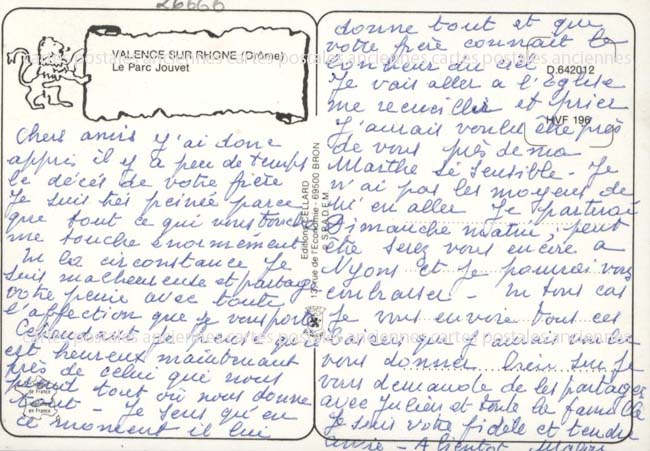 26666
VALENCE SUR RHONE (Drôme)
Le Parc Jouvet
cartes postales anciennes cartes postales anciennes cartes postales anciennes
Chers amis j'ai donc
appris il y a peu de temps
le décès de votre frère
Je suis très peinée parce
que tout ce qui vous touche
me touche énormément
la circonstance je
suis malheureuse et partage
votre peine avec toute
l'affection que je vous porte
Cependant je pense qu'il
est heureux maintenant
près de celui qui nous
tout où nous donne
tout - Je sens qu'en
ce moment il lui
Editions CELLARD
rue de l'Economie - 69500 BRON
S.P.A.D.E.M.
de France
en France
donne tout et que
votre frère connait le
bonheur du ciel
Je vais aller à l'Eglise
me recueillir et prier
J'aurais voulu être près
de vous près de ma
Marthe si sensible - Je
n'ai pas les moyens de
m'en aller Je partirai
Dimanche matin, peut
être serez vous encore à
Nyons et je pourrai vous
- En tous cas
Je vous envoie tous ces
que j'aurais voulu
vous donner bien sur Je
vous demande de les partager
avec Julien et toute la famille
Je suis votre fidèle et tendre
amie - A bientot
D.642012
HVF 196
cartes postales anciennes cartes postales anciennes cartes postales anciennes